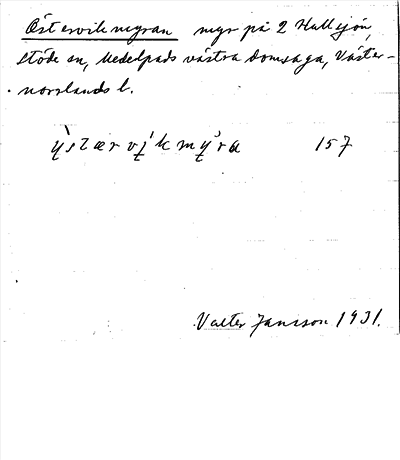 Östervikmyran myr på 2 Hallsjön,
Stöde sn, Medelpads västra domsaga, Väster-
norrlands l.
157
Valter Jansson 1931.